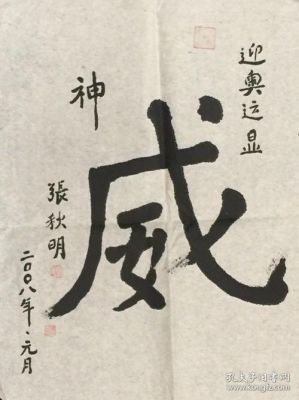 迎奥运显
威
神
張秋明
二〇〇八年·元月
孔夫子旧书网